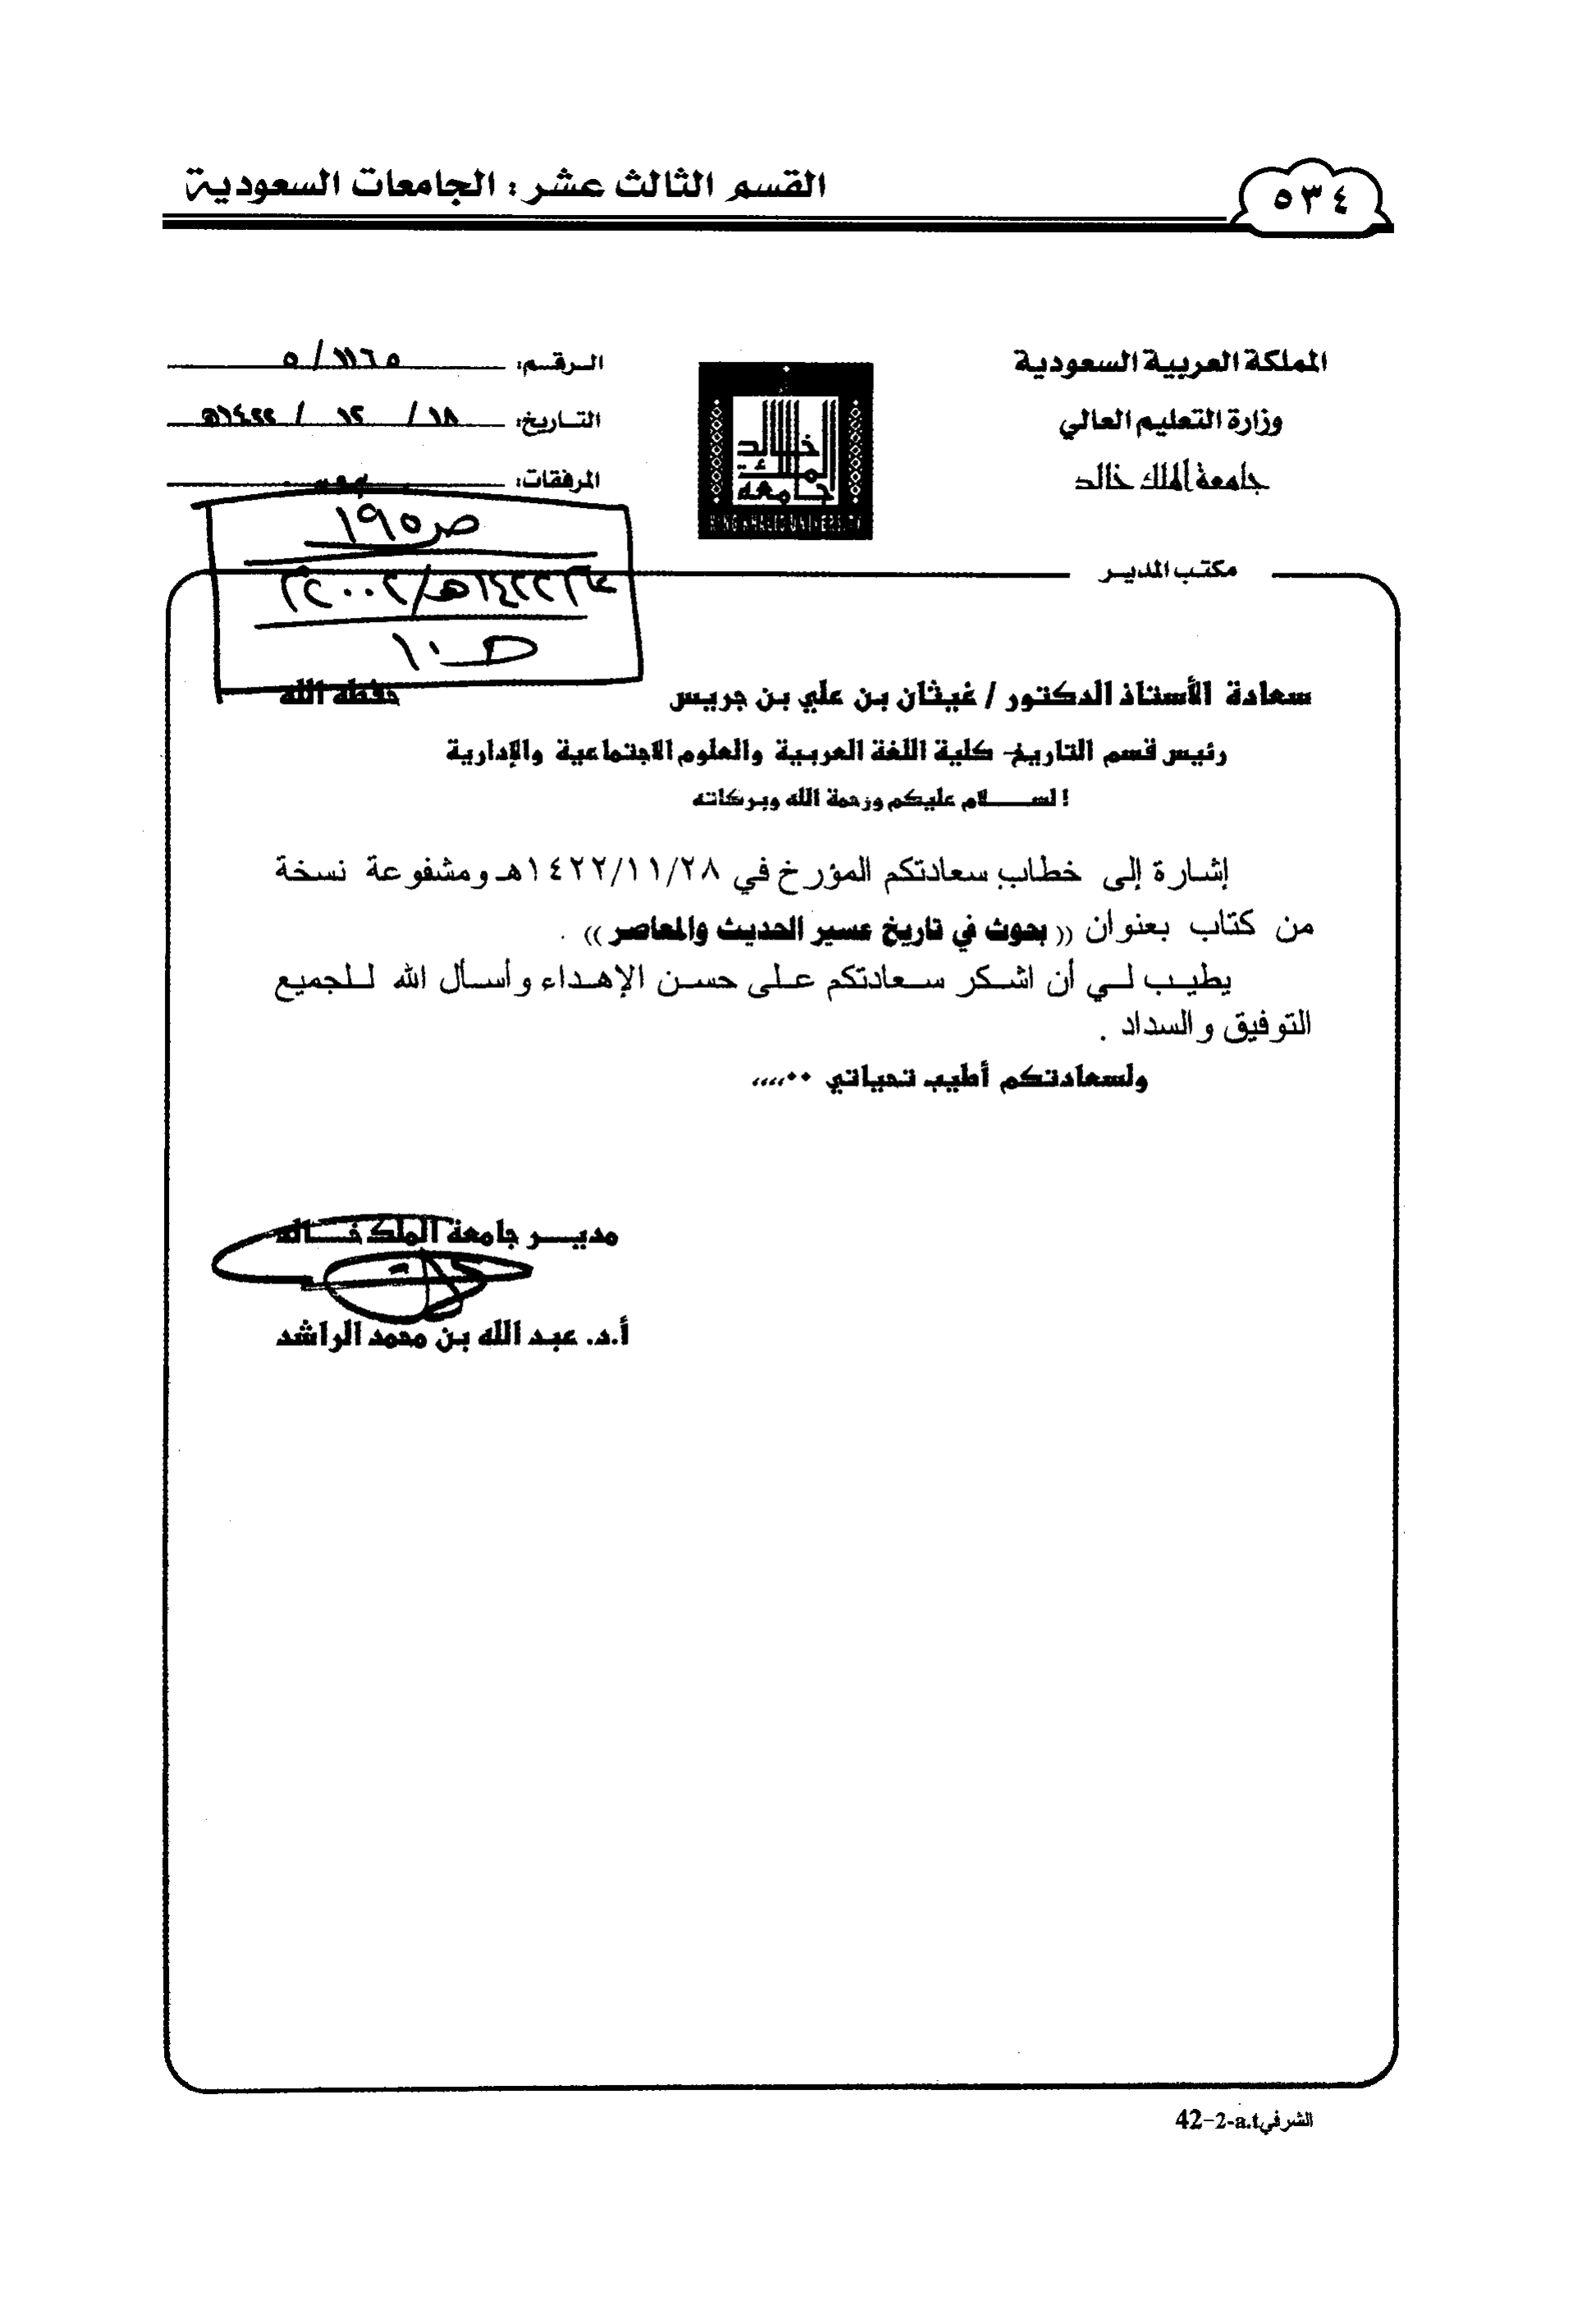 القسم الثالث عشر : الجامعات السعودية
٥٣٤
المملكة العربية السعودية
وزارة التعليم العالي
جامعة الملك خالد
الرقم: ١١٦٥ / ٥
التاريخ: ١٨ / ١٢ / ١٤٢٢هـ
المرفقات:
خالد
الملك
جامعة
KING KHALID UNIVERSITY
ص١٩٥
١٤٢٢هـ/٢٠٠٢م
مكتب المدير
سعادة الأستاذ الدكتور / غيثان بن علي بن جريس حفظه الله
رئيس قسم التاريخ- كلية اللغة العربية والعلوم الاجتماعية والإدارية
السـلام عليكم ورحمة الله وبركاته
إشارة إلى خطاب سعادتكم المؤرخ في ١٤٢٢/١١/٢٨هـ ومشفوعة نسخة
من كتاب بعنوان (( بحوث في تاريخ عسير الحديث والمعاصر )) .
يطيب لي أن اشكر سعادتكم على حسن الإهداء وأسأل الله للجميع
التوفيق والسداد .
ولسعادتكم أطيب تحياتي ٠٠،،،،
مديـر جامعة الملك خـالد
أ.د. عبد الله بن محمد الراشد
الشرفي42-2-a.t